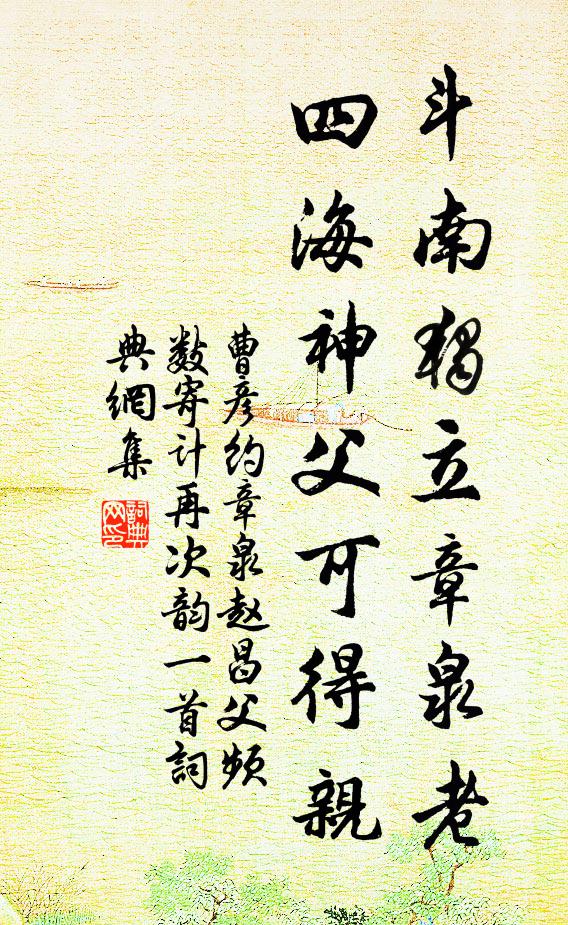 斗南独立章泉老
四海神父可得親
曹彦约章泉赵昌父频
数寄计再次韵一首詞
典網集
詞典
网印